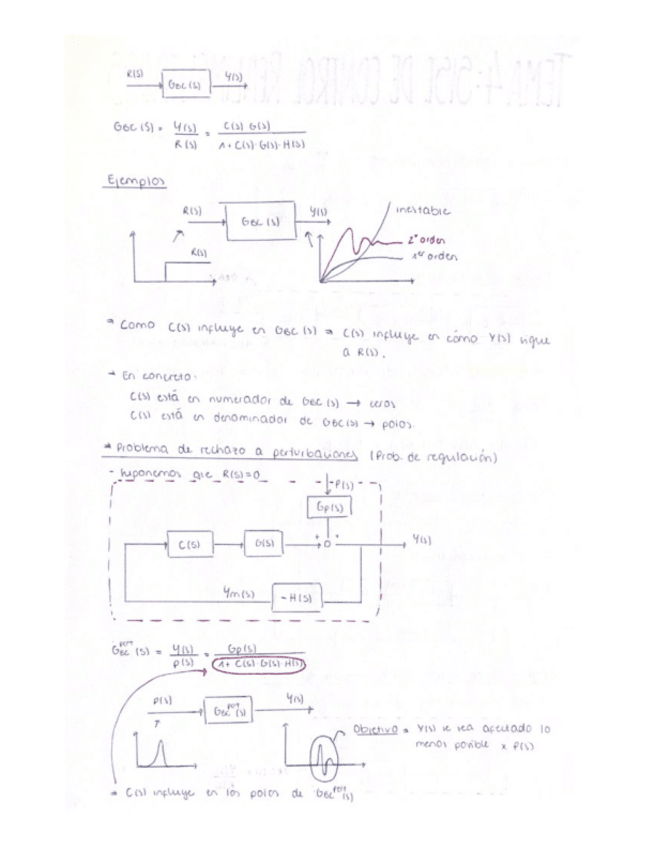 R(s) GBC(s) Y(s)
GBC(s) = Y(s) / R(s) = C(s)·G(s) / 1 + C(s)·G(s)·H(s)
Ejemplos
R(s) GBC(s) Y(s) inestable
R(s) 2º orden
1er orden
Como C(s) influye en GBC(s) ⇒ C(s) influye en cómo Y(s) sigue
a R(s).
→ En concreto:
C(s) está en numerador de GBC(s) → ceros
C(s) está en denominador de GBC(s) → polos.
Problema de rechazo a perturbaciones (Prob. de regulación)
- Suponemos que R(s)=0
P(s)
Gp(s)
C(s) G(s) + + Y(s)
Ym(s) -H(s)
GBC^pert (s) = Y(s) / P(s) = Gp(s) / 1 + C(s)·G(s)·H(s)
P(s) GBC^pert(s) Y(s)
Objetivo = Y(s) se vea afectado lo
menos posible x P(s)
⇒ C(s) influye en los polos de GBC^pert(s)